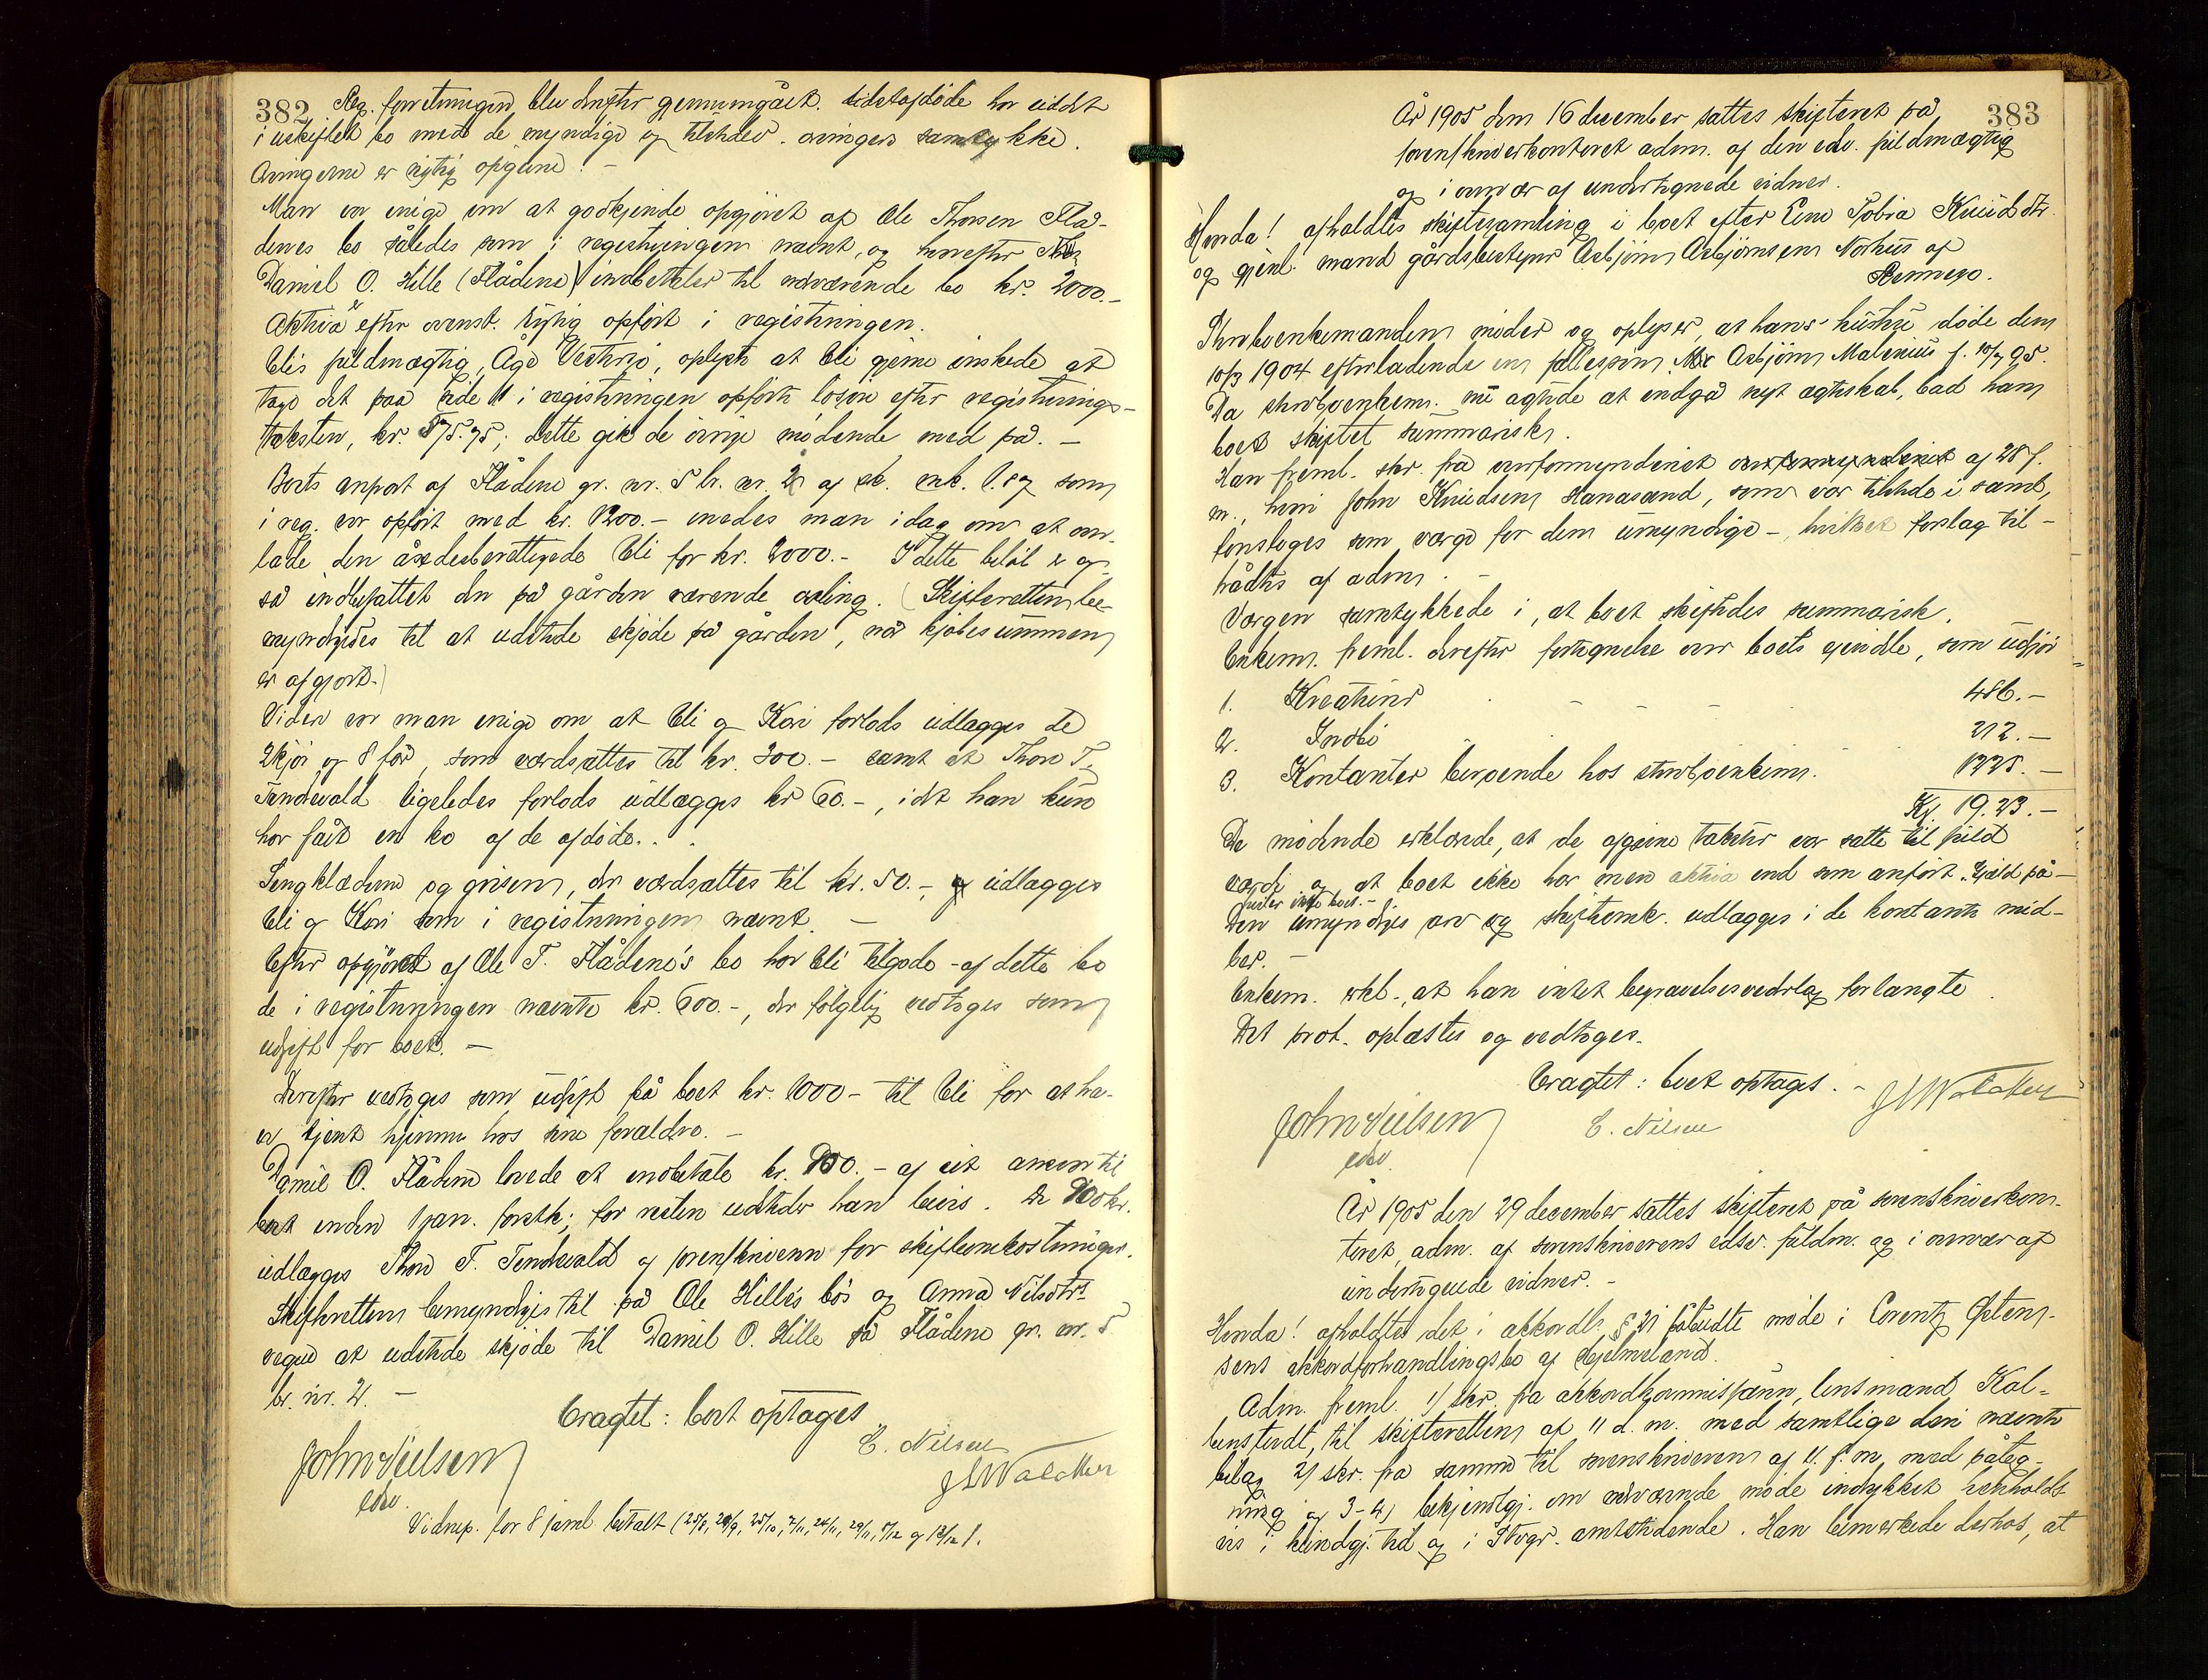 382
Reg. forretningen blev derefter gjennemgået. Sidstafdöde har siddet
i uskiftet bo med de myndige og tilstedev. arvingers samtykke.
Arvingerne er rigtig opgivne. -
Man var enige om at godkjende opgjöret af Ole Thorsen Flå-
denes bo således som i registreringen nævnt, og herefter
Daniel O. Hille (Flådene) indbetaler til nærværende bo kr. 2000.-
Aktiva er efter ovenst. rigtig opfört i registreringen.
Elis fuldmægtig, Åge Vestrio, oplyste at Eli gjerne önskede at
tage det paa side 11 i registreringen opförte lösöre efter registrerings-
taksten, kr. 575.75; dette gik de övrige mödende med på. -
Boets anpart af Flådene gr. nr. 5 br. nr. 2 af sk. mk. 1.89 som
i reg. var opfört med kr. 1200.- enedes man idag om at over-
lade den åsædesberettigede Eli for kr. 2000.- I dette belöb er og-
så indbefattet den på gården værende avling. (Skifteretten be-
myndiges til at udstede skjöde på gården, når kjöbesummen
er afgjort.)
Videre var man enige om at Eli og Kari forlods udlægges de
2 kjör og 8 får, som værdsættes til kr. 300.- samt at Thore T.
Tendevald ligeledes forlods udlægges kr 60.-, idet han kun
har fået en ko af de afdöde.
Sengklæderne og grisen, der værdsættes til kr. 50.-, udlægges
Eli og Kari som i registreringen nævnt. -
Efter opgjöret af Ole T. Flådene's bo har Eli tilgode af dette bo
de i registreringen nævnte kr. 600.-, der fölgelig vedtoges som
udgift for boet. -
Derefter vedtoges som udgift på boet kr. 1000- til Eli for at ha-
ve tjent hjemme hos sine forældre. -
Daniel O. Flådene lovede at indbetale kr. 900.- af sit ansvar til
boet inden 1 jan. förstk.; for resten udsteder han bevis. De 900 kr.
udlægges Thore T. Tendevald og sorenskriveren for skifteomkostninger.
Skifteretten bemyndiges til på Ole Hille's bo's og Anna Nilsdtr's
vegne at udstede skjöde til Daniel O. Hille på Flådene gr. nr. 5
br. nr. 2. -
Eragtet: boet optages
John Nielsen
edsv.
E. Nilsen
J S Walaker
Vidnep. for 8 saml. betalt (25/8, 29/9, 25/10, 7/11, 24/11, 29/11, 5/12 og 12/12).
383
År 1905 den 16 december sattes skifteret på
sorenskriverkontoret adm. af den edsv. fuldmægtig
og i overvær af undertegnede vidner.
Hvorda! afholdtes skiftesamling i boet efter Lene Tobia Knudsdtr.
og gjenl. mand gårdsbestyrer Asbjörn Asbjörnsen Norhus af
Rennesö.
Sterboenkemanden möder og oplyser, at hans hustru döde den
10/3 1904 efterladende en fællessön Asbjörn Malenius f. 10/7 95.
Da sterboenkem. nu agtede at indgå nyt ægteskab, bad han
boet skiftet summarisk.
Han freml. skr. fra overformynderiet af 28 f.
m., hvori John Knudsen Hanasand, som var tilstede i saml.,
foresloges som værge for den umyndige -, hvilket forslag til-
trådtes af adm. -
Værgen samtykkede i, at boet skiftedes summarisk.
Enkem. freml. derefter fortegnelse over boets eiendele, som udgjör
1. Kreaturer 486.-
2. Indbo 212.-
3. Kontanter beroende hos sterboenkem. 1225.-
Kr. 19.23.-
De mödende erklærede, at de opgivne takster var satte til fuld
værdi og at boet ikke har mere aktiva end som anfört. Gjæld på-
hviler ikke boet. -
Den umyndiges arv og skifteomk. udlægges i de kontante mid-
ler. -
Enkem. erkl., at han intet begravelsesvederlag forlangte.
Det prot. oplæstes og vedtoges.
Eragtet: boet optages. -
J S Walaker
John Nielsen
edsv.
E. Nilsen
År 1905 den 29 december sattes skifteret på sorenskriverkon-
toret, adm. af sorenskriverens edsv. fuldm. og i overvær af
undertegnede vidner. -
Hvorda! afholdtes det i akkordl. § 21 påbudte möde i Lorentz Osten-
sens akkordforhandlingsbo af Hjelmeland.
Adm. freml. 1) skr. fra akkordkommissæren, lensmand Kol-
benstvedt, til skifteretten af 11 d. m. med samtlige deri nævnte
bilag 2) skr. fra samme til sorenskriveren af 11 f. m. med påteg-
ning og 3-4) bekjendtgj. om nærværende möde indrykket henholds-
vis i kundgj. tid. og i Stvgr. amtstidende. Han bemerkede derhos, at